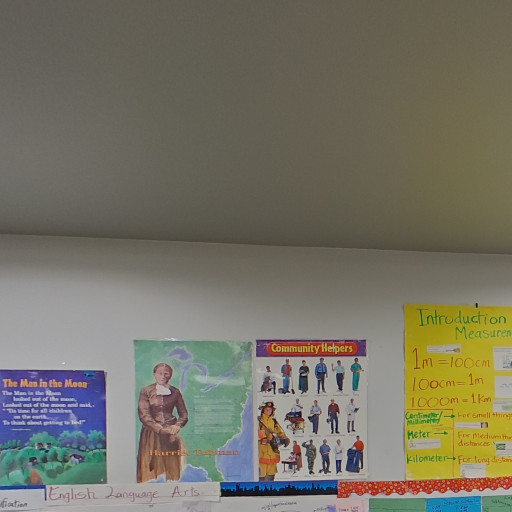 The Man in the Moon
The Man in the Moon
looked out of the moon,
Looked out of the moon and said,
"'Tis time for all children
on the earth,
To think about getting to bed!"
Harriet Tubman
Community Helpers
Introduction
Measurem
1m = 100cm
100cm = 1m
1000m = 1km
Centimeter/
millimeter
For small things
Meter
For medium
distances
Kilometer
For long distance
English Language Arts